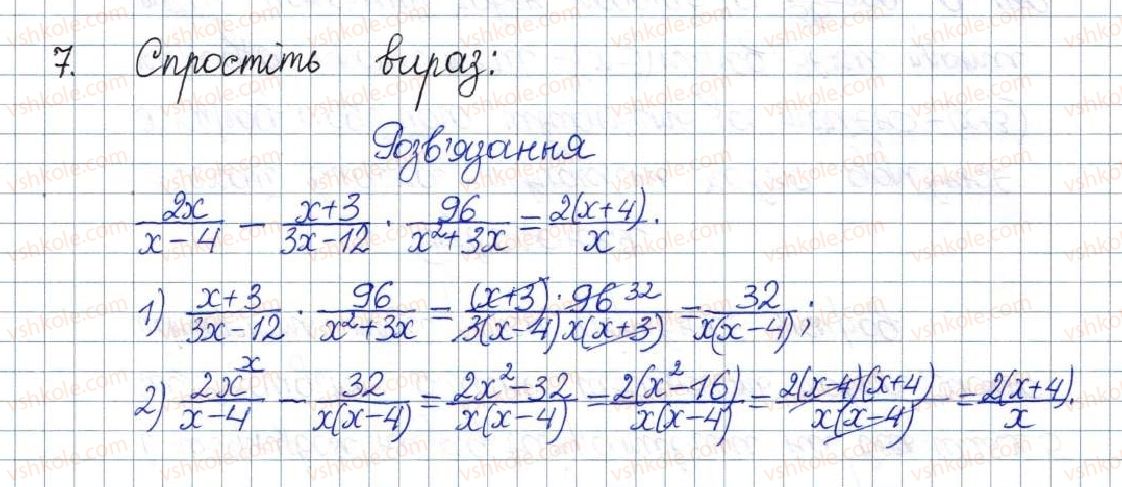 7. Спростіть вираз:
Розв'язання
2x/(x-4) - (x+3)/(3x-12) · 96/(x²+3x) = 2(x+4)/x.
1) (x+3)/(3x-12) · 96/(x²+3x) = (x+3)·96 32/(3(x-4)x(x+3)) = 32/(x(x-4));
2) 2x ˣ/(x-4) - 32/(x(x-4)) = (2x²-32)/(x(x-4)) = 2(x²-16)/(x(x-4)) = 2(x-4)(x+4)/(x(x-4)) = 2(x+4)/x.
vshkole.com